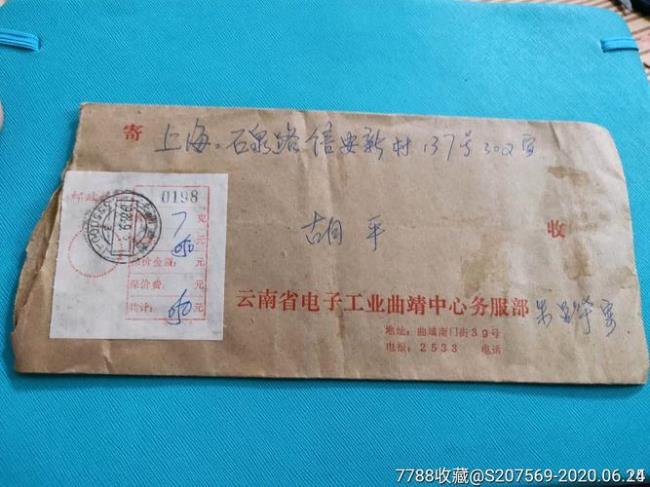 寄 上海。石泉路信安新村137号302室
0198
7 克
元
价金额: 元
保价费: 元
共计: 元
胡 平 收
云南省电子工业曲靖中心务服部
地址:曲靖南门街39号
电报:2533 电话
7788收藏@S207569-2020.06.24